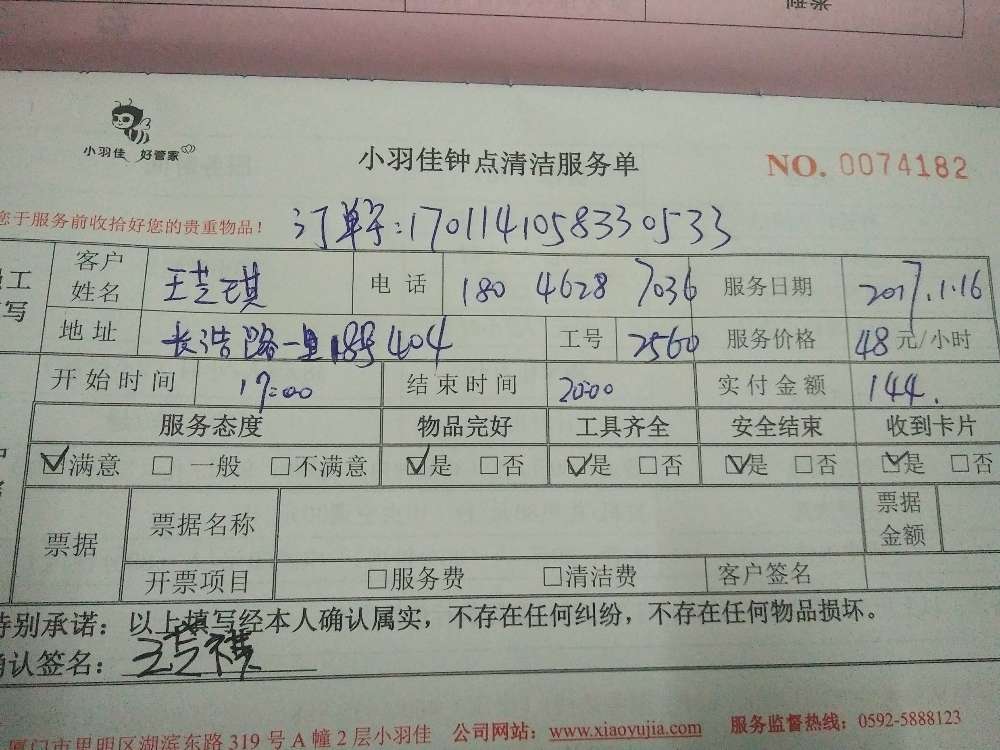 小羽佳 好管家
小羽佳钟点清洁服务单
NO. 0074182
您于服务前收拾好您的贵重物品！
订单号:1701141058330533
客户姓名 王芸琪 电话 180 4628 7036 服务日期 2017.1.16
地址 长浩路一里18号404 工号 2560 服务价格 48元/小时
开始时间 17:00 结束时间 20:00 实付金额 144.
服务态度 物品完好 工具齐全 安全结束 收到卡片
☑满意 □一般 □不满意 ☑是 □否 ☑是 □否 ☑是 □否 ☑是 □否
票据 票据名称 票据金额
开票项目 □服务费 □清洁费 客户签名
特别承诺：以上填写经本人确认属实，不存在任何纠纷，不存在任何物品损坏。
确认签名：王芸琪
厦门市思明区湖滨东路319号A幢2层小羽佳 公司网站：www.xiaoyujia.com 服务监督热线：0592-5888123